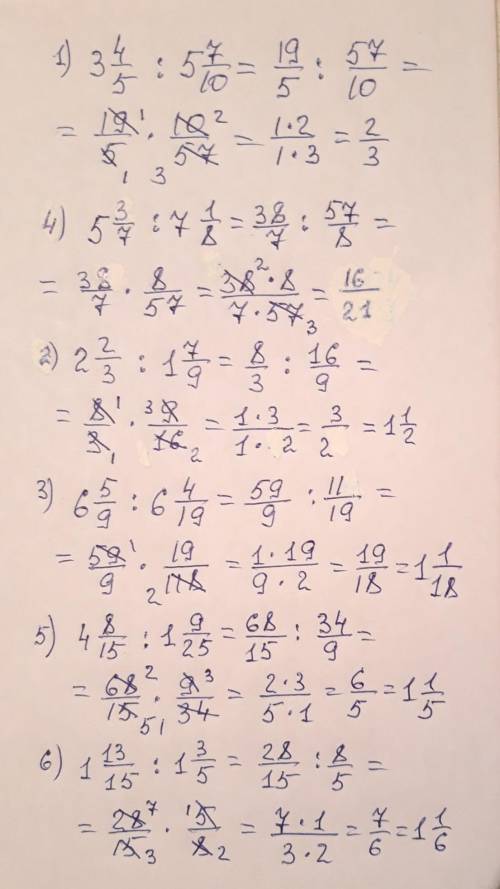 1) 3 4/5 : 5 7/10 = 19/5 : 57/10 =
= 19/5 · 10/57 = 1·2/1·3 = 2/3
4) 5 3/7 : 7 1/8 = 38/7 : 57/8 =
= 38/7 · 8/57 = 38·8/7·57 = 16/21
2) 2 2/3 : 1 7/9 = 8/3 : 16/9 =
= 8/3 · 9/16 = 1·3/1·2 = 3/2 = 1 1/2
3) 6 5/9 : 6 4/19 = 59/9 : 11/19 =
= 59/9 · 19/118 = 1·19/9·2 = 19/18 = 1 1/18
5) 4 8/15 : 1 9/25 = 68/15 : 34/9 =
= 68/15 · 9/34 = 2·3/5·1 = 6/5 = 1 1/5
6) 1 13/15 : 1 3/5 = 28/15 : 8/5 =
= 28/15 · 5/8 = 7·1/3·2 = 7/6 = 1 1/6